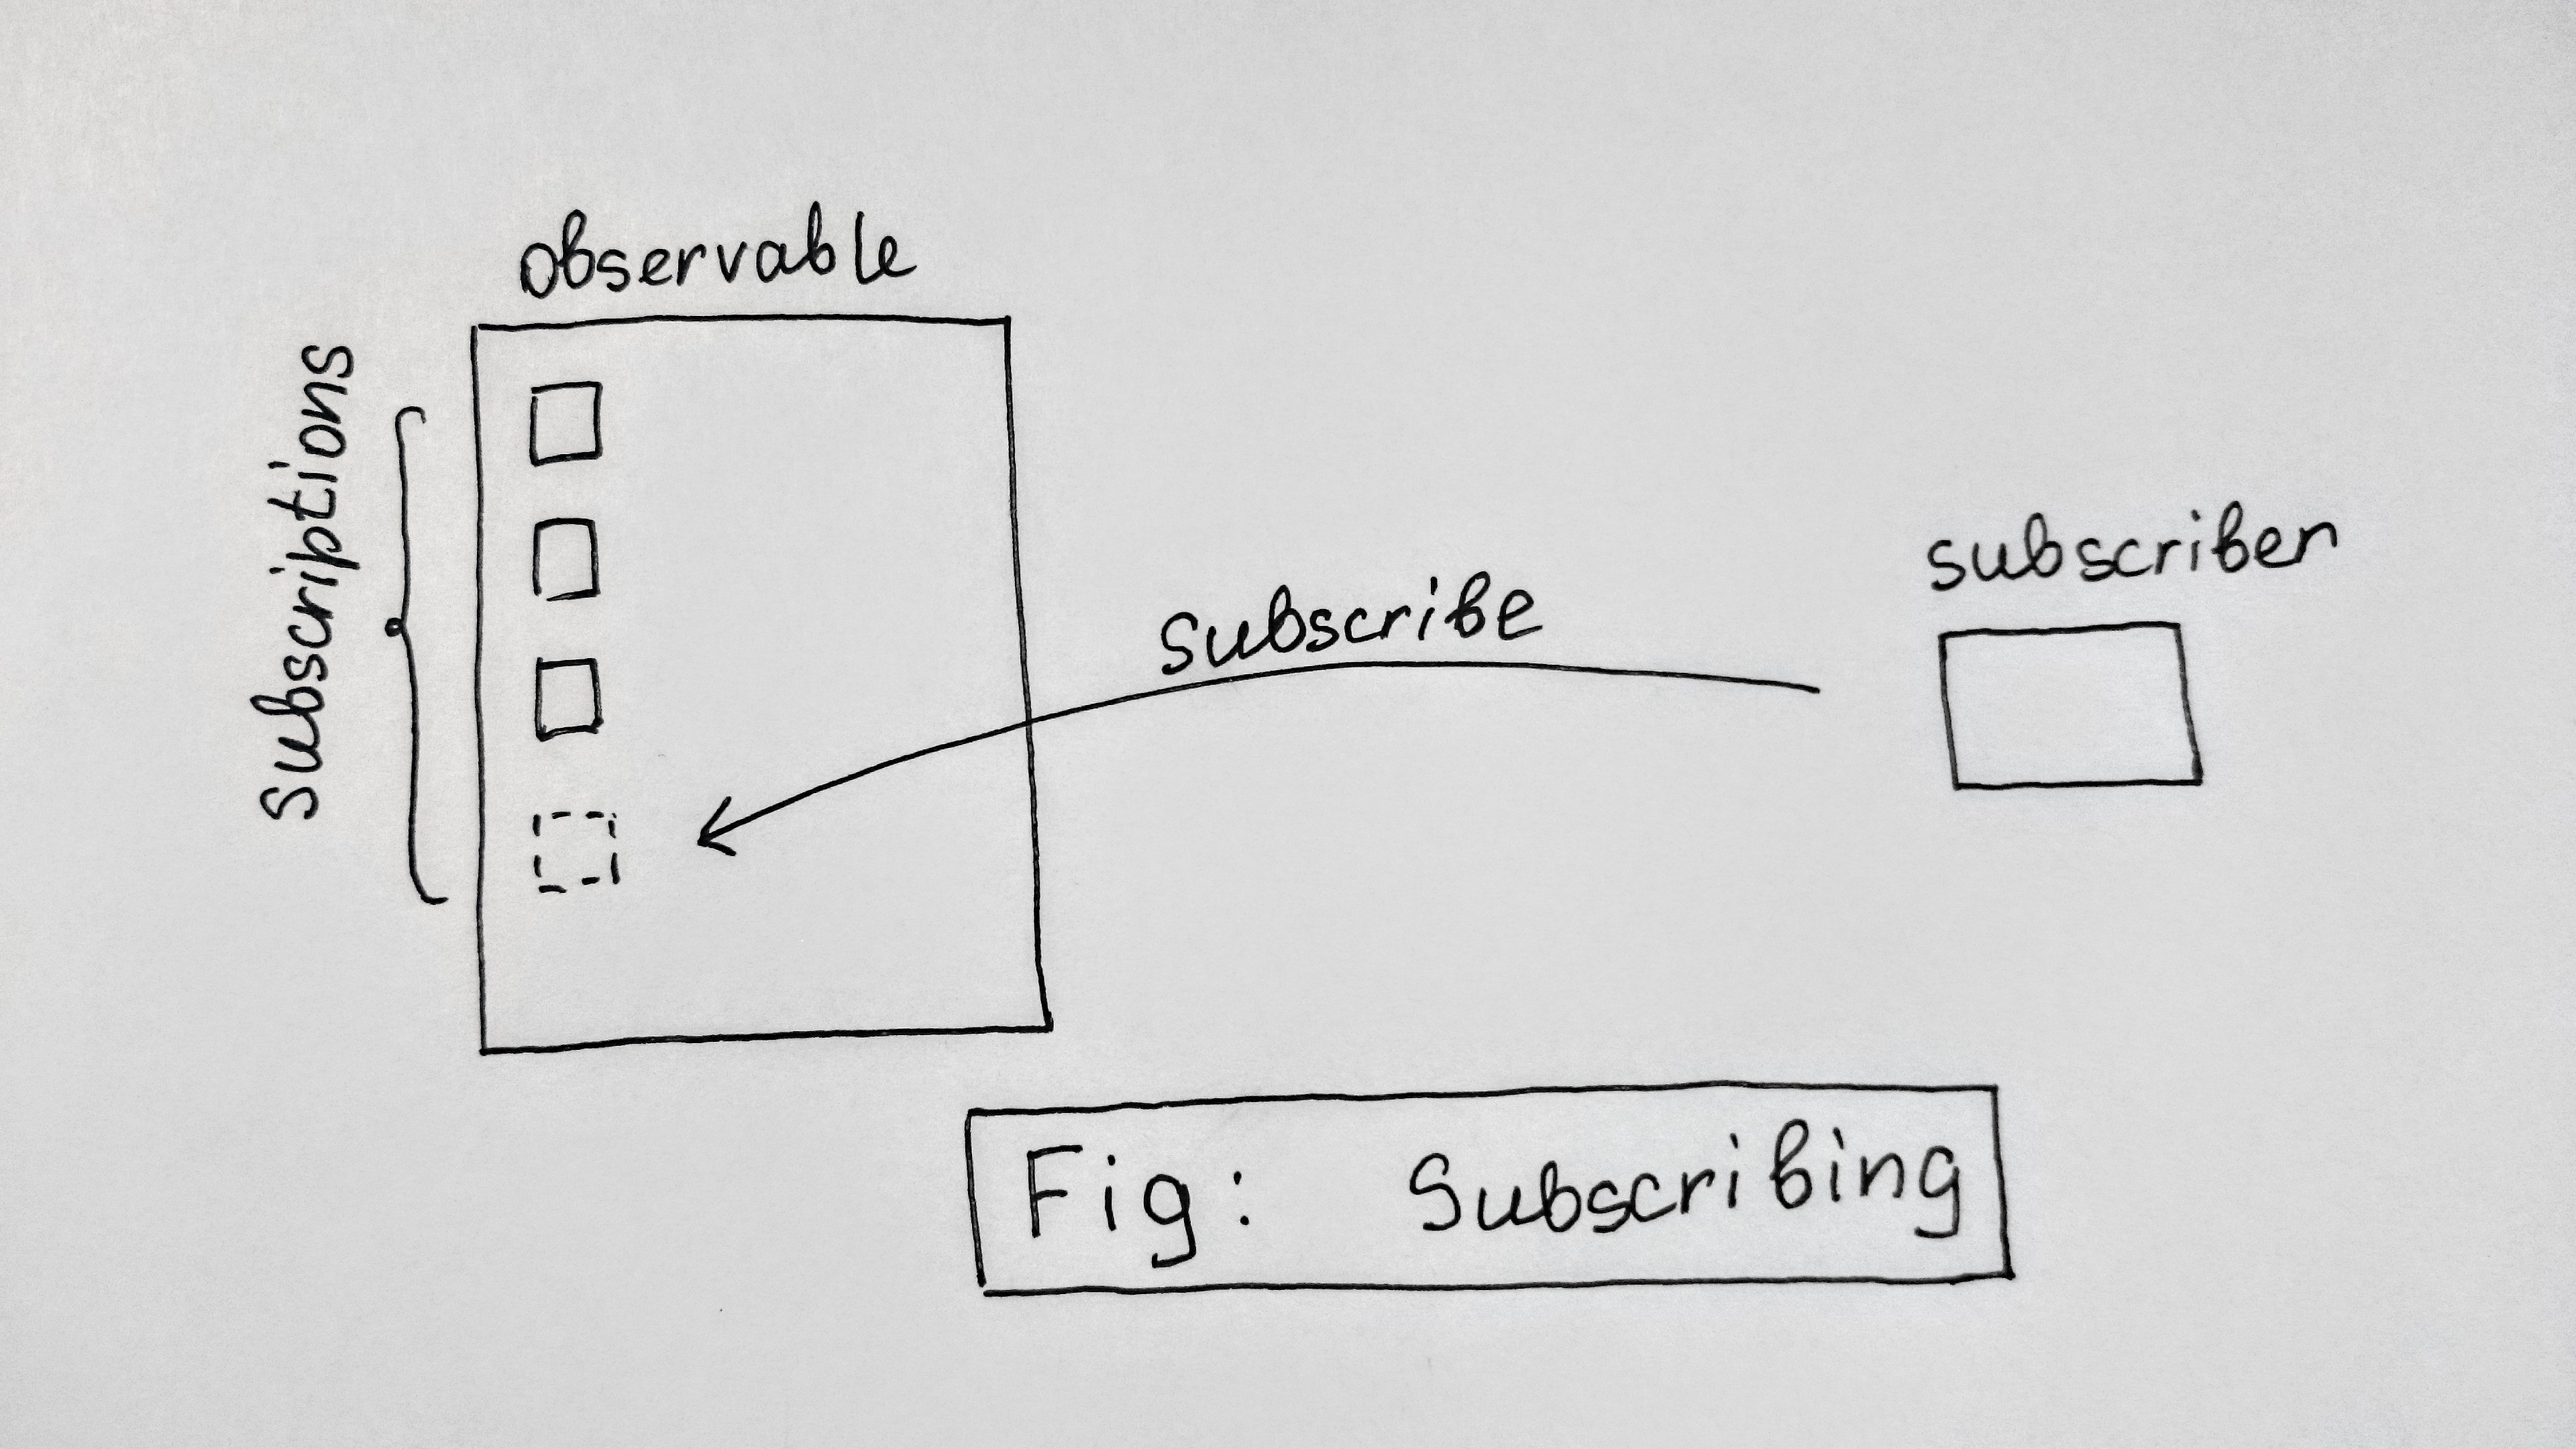 observable
Subscriptions
subscriber
Subscribe
Fig: Subscribing